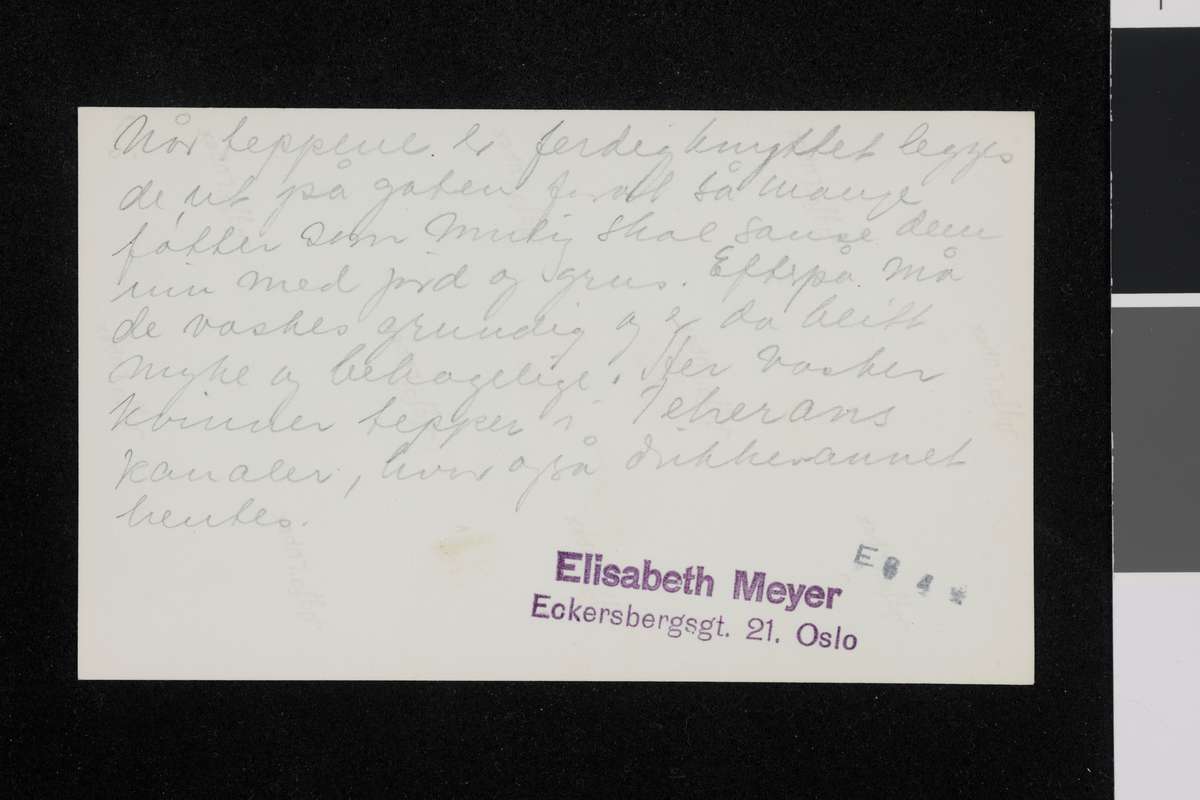 Når teppene er ferdig knyttet legges
de ut på gaten forat så mange
føtter som mulig skal sause dem
inn med jord og grus. Efterpå må
de vaskes grundig og er da blitt
myke og behagelige. Her vasker
kvinder tepper i Teherans
kanaler, hvor også drikkevannet
hentes.
Elisabeth Meyer
Eckersbergsgt. 21. Oslo